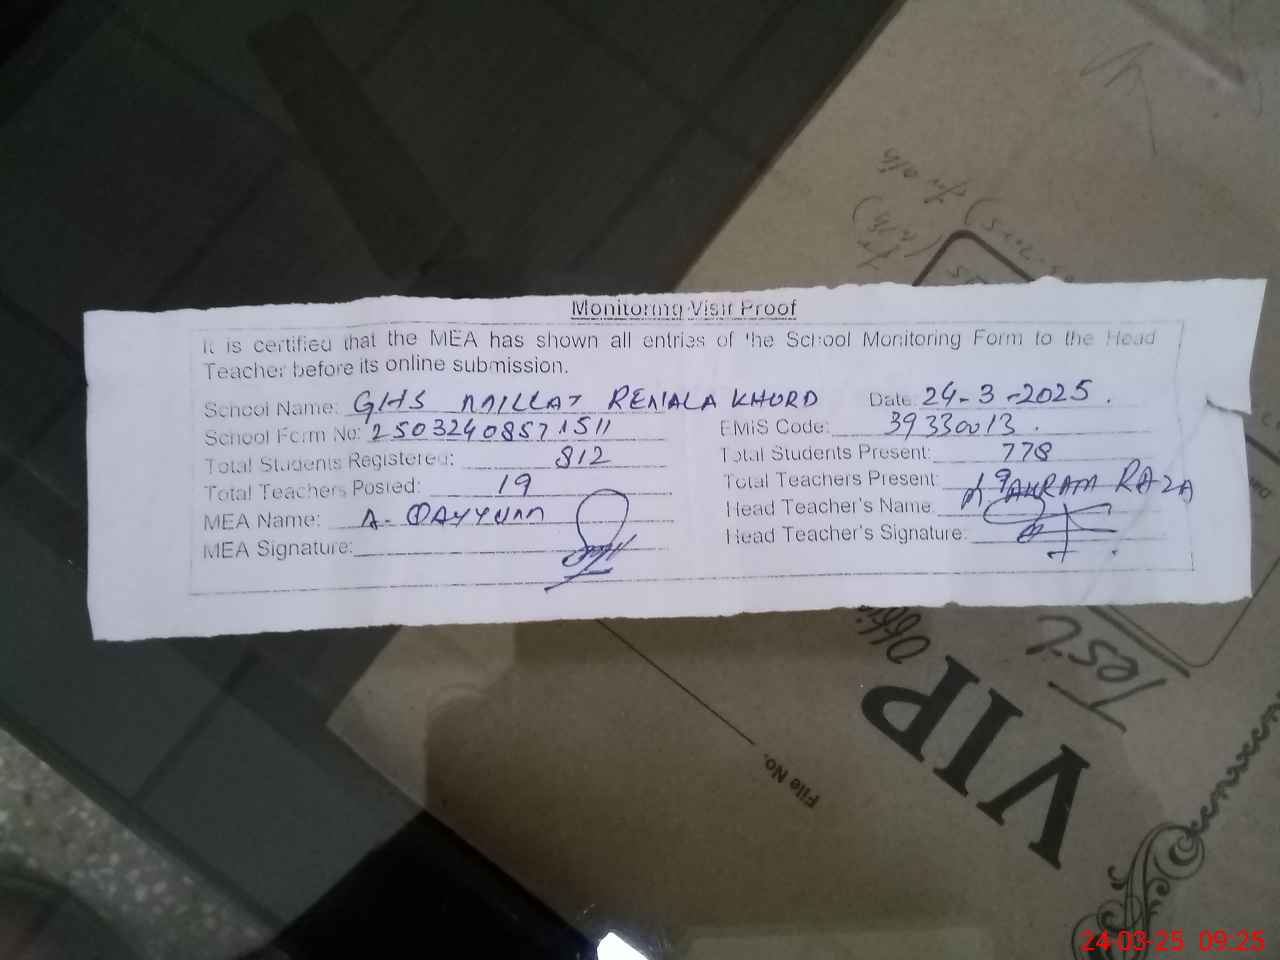 Monitoring Visit Proof
It is certified that the MEA has shown all entries of the School Monitoring Form to the Head
Teacher before its online submission.
School Name: GHS MILLAT RENALA KHURD Date: 24-3-2025.
School Form No: 25032408571511 EMIS Code: 39330013.
Total Students Registered: 812 Total Students Present: 778
Total Teachers Posted: 19 Total Teachers Present: 19
MEA Name: A. QAYYUM Head Teacher's Name AKRAM RAZA
MEA Signature: Head Teacher's Signature:
Test
VIP
File No.
24-03-25 09:25